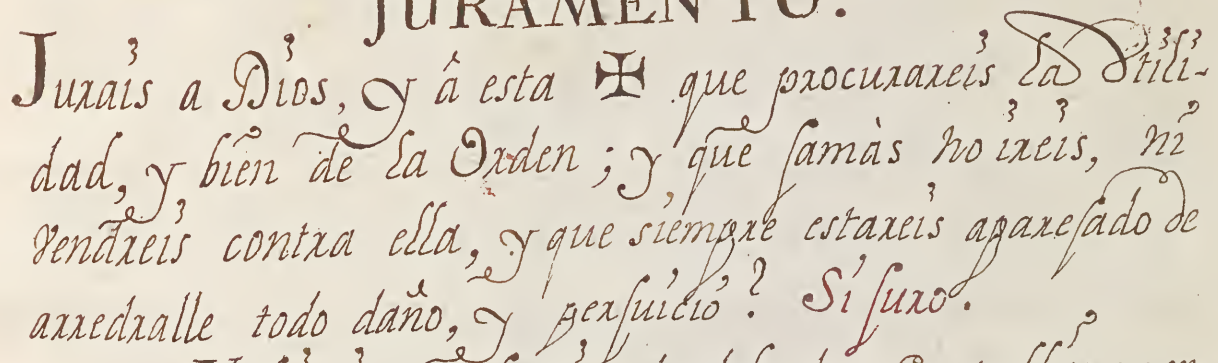 JURAMENTO.
Jurais a Dios, y â esta ✠ que procurareis la Vtili-
dad, y bien de la Orden; y que jamàs no ireis, ni
vendreis contra ella, y que siempre estareis aparejado de
arredralle todo daño, y perjuicio? Sì juro.